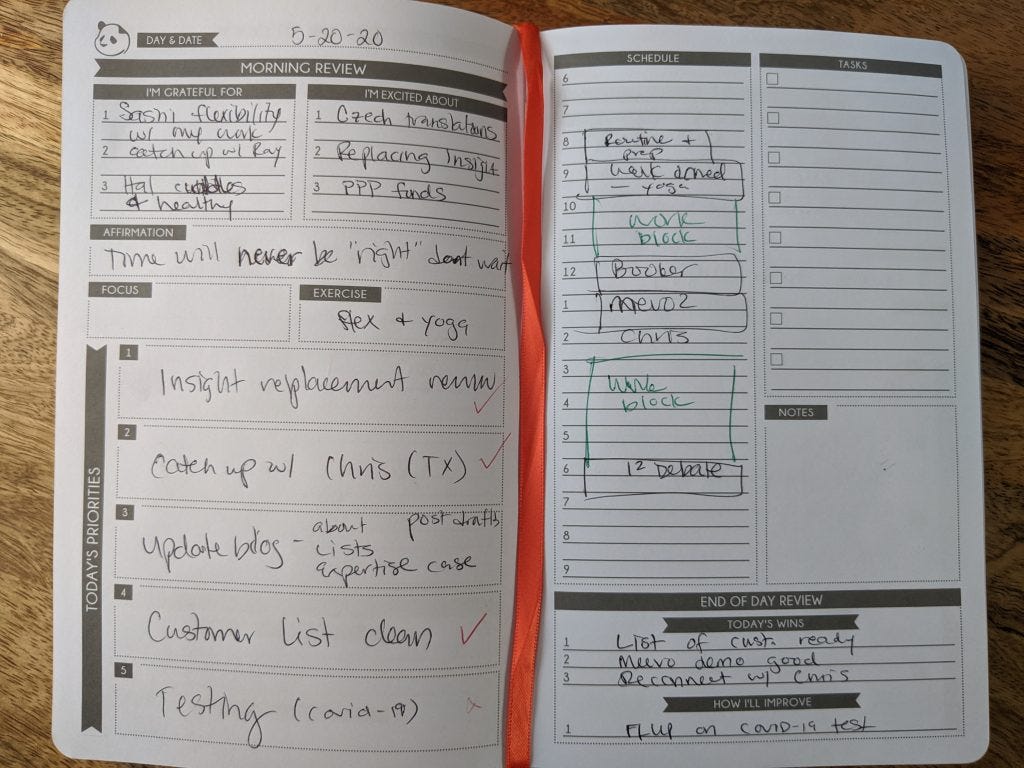 DAY & DATE 5-20-20
MORNING REVIEW
I'M GRATEFUL FOR
1 Sashi flexibility
w/ my work
2 catch up w/ Ray
3 Hal cuddles
& healthy
I'M EXCITED ABOUT
1 Czech translations
2 Replacing Insight
3 PPP funds
AFFIRMATION
Time will never be "right" dont wait
FOCUS
EXERCISE
flex + yoga
TODAY'S PRIORITIES
1
Insight replacement
2
Catch up w/ Chris (TX)
3
update blog - about post drafts
Lists
expertise case
4
Customer List clean
5
Testing (covid-19)
SCHEDULE
6
7
8 Routine +
prep
9
- yoga
10 work
11 block
12 Booker
1 mevo2
2 Chris
3 Work
4 block
5
6 Debate
7
8
9
TASKS
NOTES
END OF DAY REVIEW
TODAY'S WINS
1 List of cust. ready
2 Meevo demo good
3 Reconnect w/ Chris
HOW I'LL IMPROVE
1 FLUP on covid-19 test